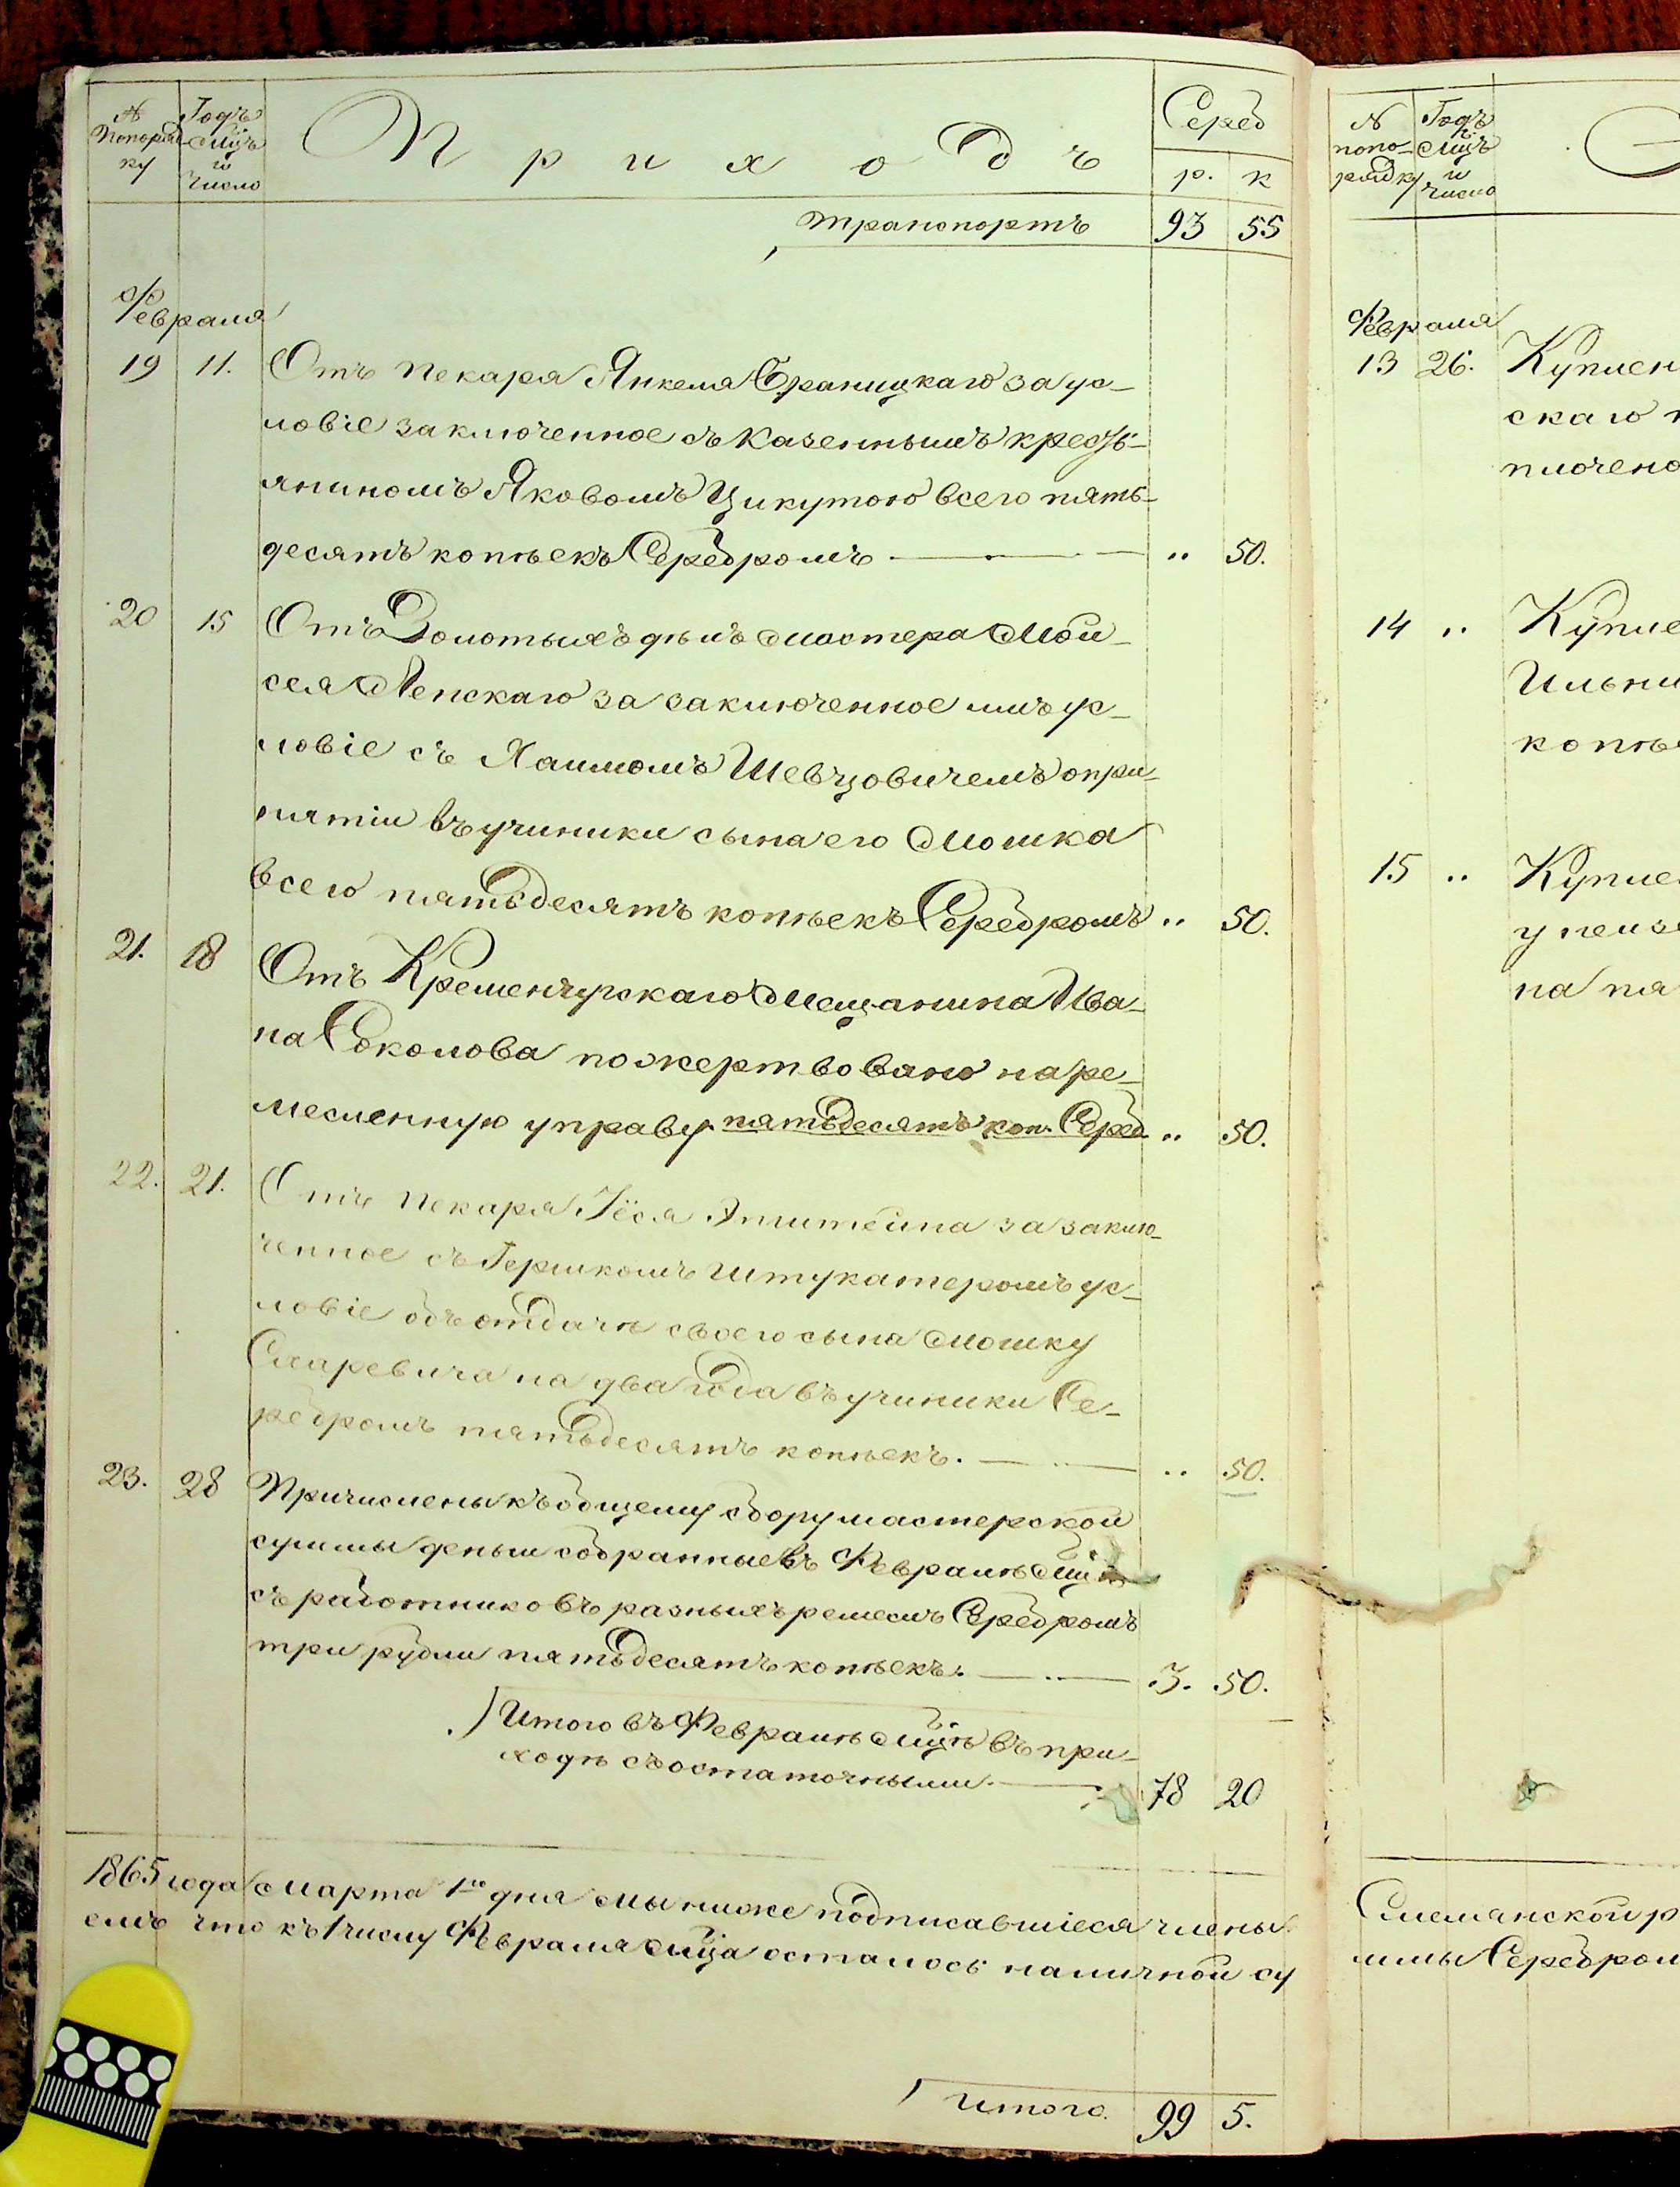 № Попоряд-ку
Годъ Мцъ и Число
Приходъ
Сереб
р. к
транспортъ 93 55
Февраля
19 11. Отъ пекаря Янкеля Браницкаго за ус-
ловіе заключенное съ Казеннымъ кресть-
яниномъ Яковомъ Цикутою всего пять-
десятъ копѣекъ Серебромъ .. 50.
20 15 Отъ Золотыхъ дѣлъ мастера Мой-
сея Ленскаго за заключенное имъ ус-
ловіе съ Хаимомъ Шевцовичемъ о при-
нятіи въ ученики сына его Мошка
всего пятьдесятъ копѣекъ Серебромъ .. 50.
21. 18 Отъ Кременчугскаго Мещанина Ива-
на Соколова пожертвовано на ре-
месленную управу пятьдесятъ коп. Сереб. .. 50.
22. 21. Отъ пекаря Іося Эпштейна за заклю-
ченное съ Гершкомъ Штукатеромъ ус-
ловіе объ отдачѣ своего сына Мошку
на два года въ ученики Се-
ребромъ пятьдесятъ копѣекъ. .. 50.
23. 28 Причислены къ общему сбору мастерской
суммы деньги собранные въ Февралѣ Мцѣ
съ работниковъ разныхъ ремеслъ Серебромъ
три рубли пятьдесятъ копѣекъ. 3. 50.
Итого въ Февралѣ Мцѣ въ при-
ходѣ съ остаточными. 78 20
1865 года Марта 1го дня Мы ниже подписавшіеся члены
емъ что къ 1 числу Февраля Мца осталось наличной су
итого 99 5.
№ попо-рядку
Годъ Мцъ и Число
Февраля
13 26. Куплен
скаго
плочено
14 .. Купле
Ильни
копѣ
15 .. Купле
у
на пя
Слемянской р
ммы Серебром